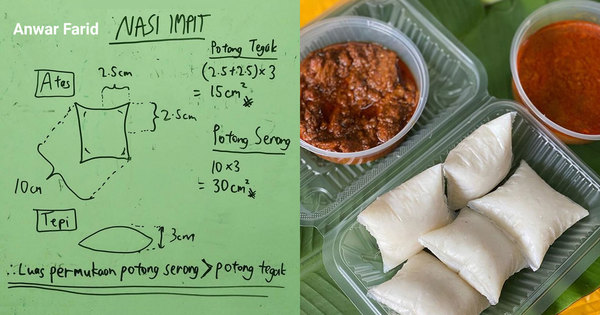 Anwar Farid
NASI IMPIT
Atas
2.5cm
2.5cm
10cm
Tepi
3cm
Potong Tegak
(2.5+2.5)×3
= 15cm²
Potong Serong
10×3
= 30cm²
∴ Luas permukaan potong serong > potong tegak